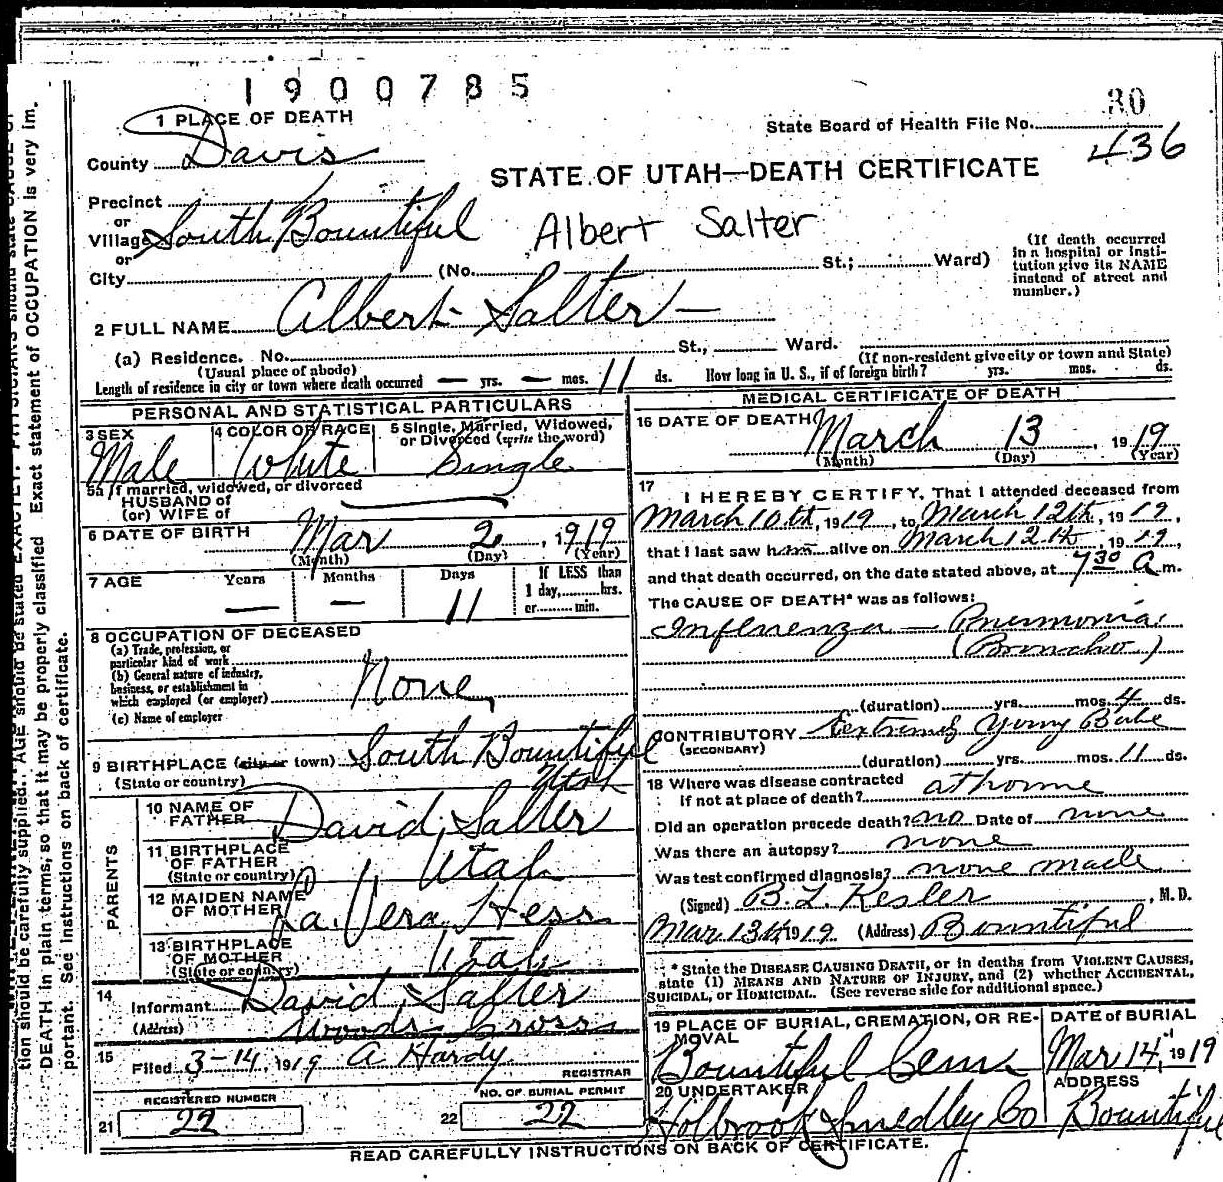 1900785
1 PLACE OF DEATH
80
State Board of Health File No.
436
County Davis
STATE OF UTAH—DEATH CERTIFICATE
Precinct
or
Village South Bountiful
Albert Salter
or
City (No. St.; Ward)
(If death occurred in a hospital or insti-
tution give its NAME
instead of street and
number.)
2 FULL NAME Albert Salter
(a) Residence. No. St., Ward.
(Usual place of abode)
(If non-resident give city or town and State)
Length of residence in city or town where death occurred — yrs. — mos. 11 ds. How long in U. S., if of foreign birth? yrs. mos. ds.
PERSONAL AND STATISTICAL PARTICULARS
3 SEX
Male
4 COLOR OR RACE
White
5 Single, Married, Widowed,
or Divorced (write the word)
Single
5a If married, widowed, or divorced
HUSBAND of
(or) WIFE of
6 DATE OF BIRTH Mar 2, 1919
(Month) (Day) (Year)
7 AGE Years Months Days
— — 11
If LESS than
1 day, hrs.
or min.
8 OCCUPATION OF DECEASED
(a) Trade, profession, or
particular kind of work
(b) General nature of industry,
business, or establishment in
which employed (or employer) None
(c) Name of employer
9 BIRTHPLACE (city or town) South Bountiful
(State or country) Utah
PARENTS
10 NAME OF
FATHER David Salter
11 BIRTHPLACE
OF FATHER Utah
(State or country)
12 MAIDEN NAME
OF MOTHER La Vera Hess
13 BIRTHPLACE
OF MOTHER Utah
(State or country)
14
Informant David Salter
(Address) Woods Cross
15
Filed 3-14, 1919 A Hardy
REGISTRAR
REGISTERED NUMBER
21 22
NO. OF BURIAL PERMIT
22 22
MEDICAL CERTIFICATE OF DEATH
16 DATE OF DEATH March 13, 1919
(Month) (Day) (Year)
17
I HEREBY CERTIFY, That I attended deceased from
March 10th, 1919, to March 12th, 1919,
that I last saw him alive on March 12th, 1919,
and that death occurred, on the date stated above, at 7 30 A m.
The CAUSE OF DEATH* was as follows:
Influenza — Pneumonia
(Broncho)
(duration) yrs. mos. 4 ds.
CONTRIBUTORY Extremely young Babe
(SECONDARY)
(duration) yrs. mos. 11 ds.
18 Where was disease contracted
if not at place of death? at home
Did an operation precede death? no Date of none
Was there an autopsy? none
Was test confirmed diagnosis? none made
(Signed) B. L. Kesler, M. D.
Mar 13th 1919 (Address) Bountiful
* State the DISEASE CAUSING DEATH, or in deaths from VIOLENT CAUSES,
state (1) MEANS AND NATURE OF INJURY, and (2) whether ACCIDENTAL,
SUICIDAL, or HOMICIDAL. (See reverse side for additional space.)
19 PLACE OF BURIAL, CREMATION, OR RE-
MOVAL
Bountiful Cem
DATE of BURIAL
Mar 14, 1919
20 UNDERTAKER
Holbrook Smedley Co
ADDRESS
Bountiful
READ CAREFULLY INSTRUCTIONS ON BACK OF CERTIFICATE.
tion should be carefully supplied. AGE should be stated EXACTLY. PHYSICIANS should state CAUSE OF
DEATH in plain terms, so that it may be properly classified. Exact statement of OCCUPATION is very im-
portant. See instructions on back of certificate.